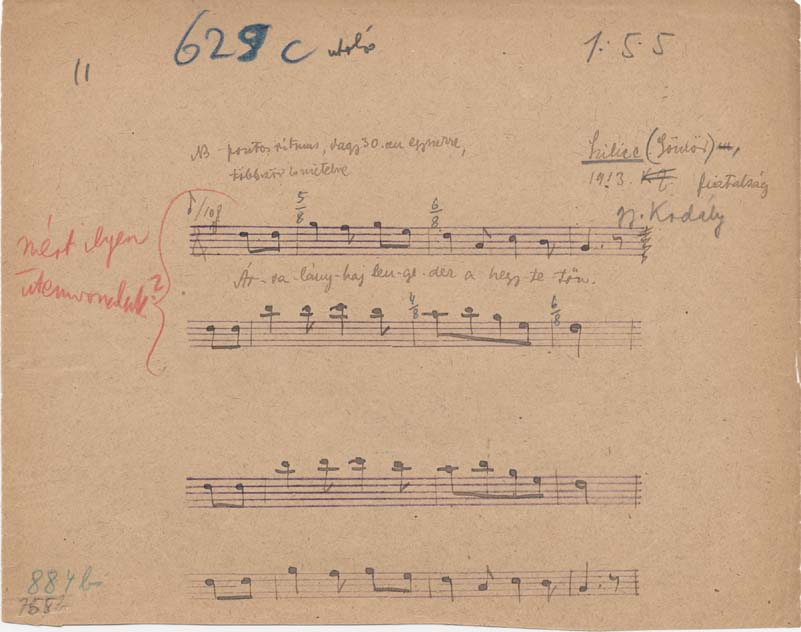 11
629 c utolsó
1. 5. 5
NB pontos ritmus, vagy 30-an egyszerre,
többször ismételve
Szilice (Gömör)
1913. fiatalság
gy. Kodály
5/8
6/8
mért ilyen
ütemvonalak?
Ár-va-lány-haj len-ge-dez a hegy-te-tőn.
4/8
6/8
884 b